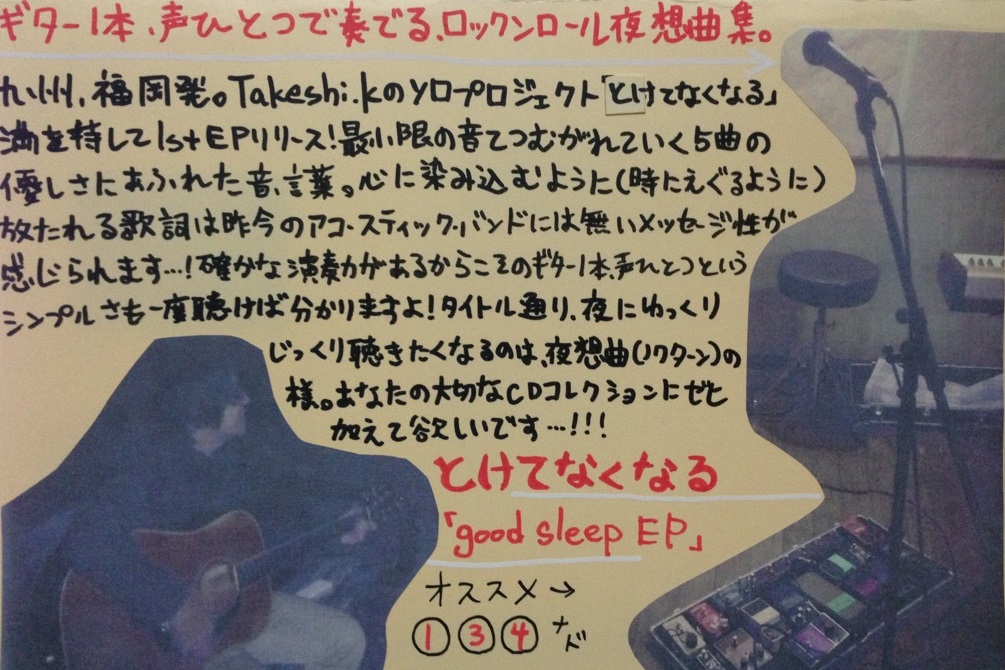 ギター1本、声ひとつで奏でる、ロックンロール夜想曲集。
九州、福岡発。Takeshi.kのソロプロジェクト「とけてなくなる」
満を持して1st EPリリース!最小限の音でつむがれていく5曲の
優しさにあふれた音、言葉。心に染み込むように(時にえぐるように)
放たれる歌詞は昨今のアコースティック・バンドには無いメッセージ性が
感じられます…!確かな演奏力があるからこそのギター1本、声ひとつという
シンプルさも一度聴けば分かりますよ!タイトル通り、夜にゆっくり
じっくり聴きたくなるのは、夜想曲(ノクターン)の
様。あなたの大切なCDコレクションにぜひ
加えて欲しいです…!!!
とけてなくなる
「good sleep EP」
オススメ→
① ③ ④ ナド